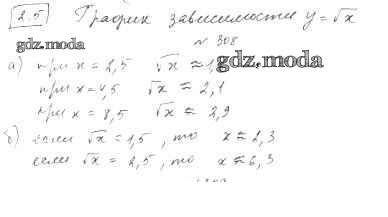 2.5 График зависимости y = √x
gdz.moda
№ 308
а) при x = 2,5 √x ≈ 1, gdz.moda
при x = 4,5 √x ≈ 2,1
при x = 8,5 √x ≈ 2,9
б) если √x = 1,5, то x ≈ 2,3
если √x = 2,5, то x ≈ 6,3